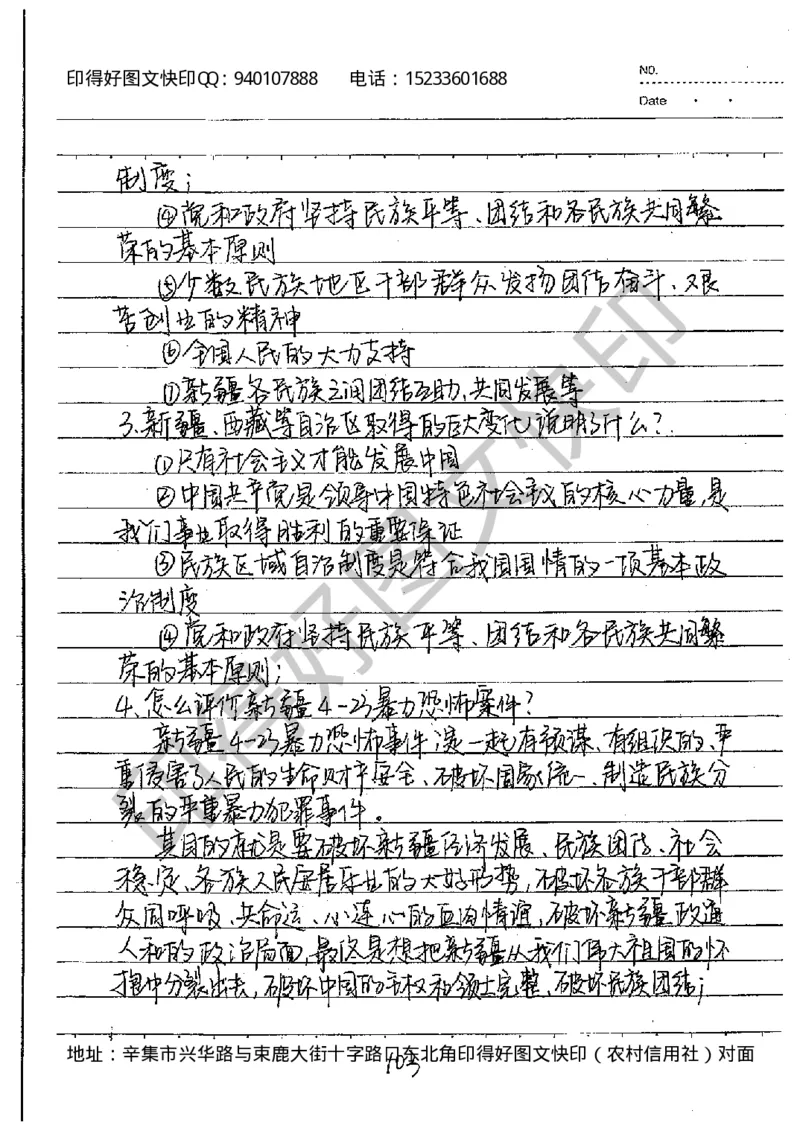 印得好图文快印QQ：940107888 电话：15233601688
NO.
Date
制度；
④党和政府坚持民族平等、团结和各民族共同繁
荣的基本原则
⑤少数民族地区干部群众发扬团结奋斗、艰
苦创业的精神
⑥全国人民的大力支持
⑦新疆各民族之间团结互助，共同发展等
3、新疆、西藏等自治区取得的巨大变化说明了什么？
①只有社会主义才能发展中国
②中国共产党是领导中国特色社会主义的核心力量，是
我们事业取得胜利的重要保证
③民族区域自治制度是符合我国国情的一项基本政
治制度
④党和政府坚持民族平等、团结和各民族共同繁
荣的基本原则；
4、怎么评价新疆4-23暴力恐怖案件？
新疆4-23暴力恐怖事件，是一起有预谋、有组织的、严
重侵害了人民的生命财产安全、破坏国家统一、制造民族分
裂的严重暴力犯罪事件。
其目的就是要破坏新疆经济发展、民族团结、社会
稳定、各族人民安居乐业的大好形势，破坏各族干部群
众同呼吸、共命运、心连心的血肉情谊，破坏新疆政通
人和的政治局面，最终是想把新疆从我们伟大祖国的怀
抱中分裂出去，破坏中国的主权和领土完整、破坏民族团结；
地址：辛集市兴华路与束鹿大街十字路口东北角印得好图文快印（农村信用社）对面
103
印得好图文快印